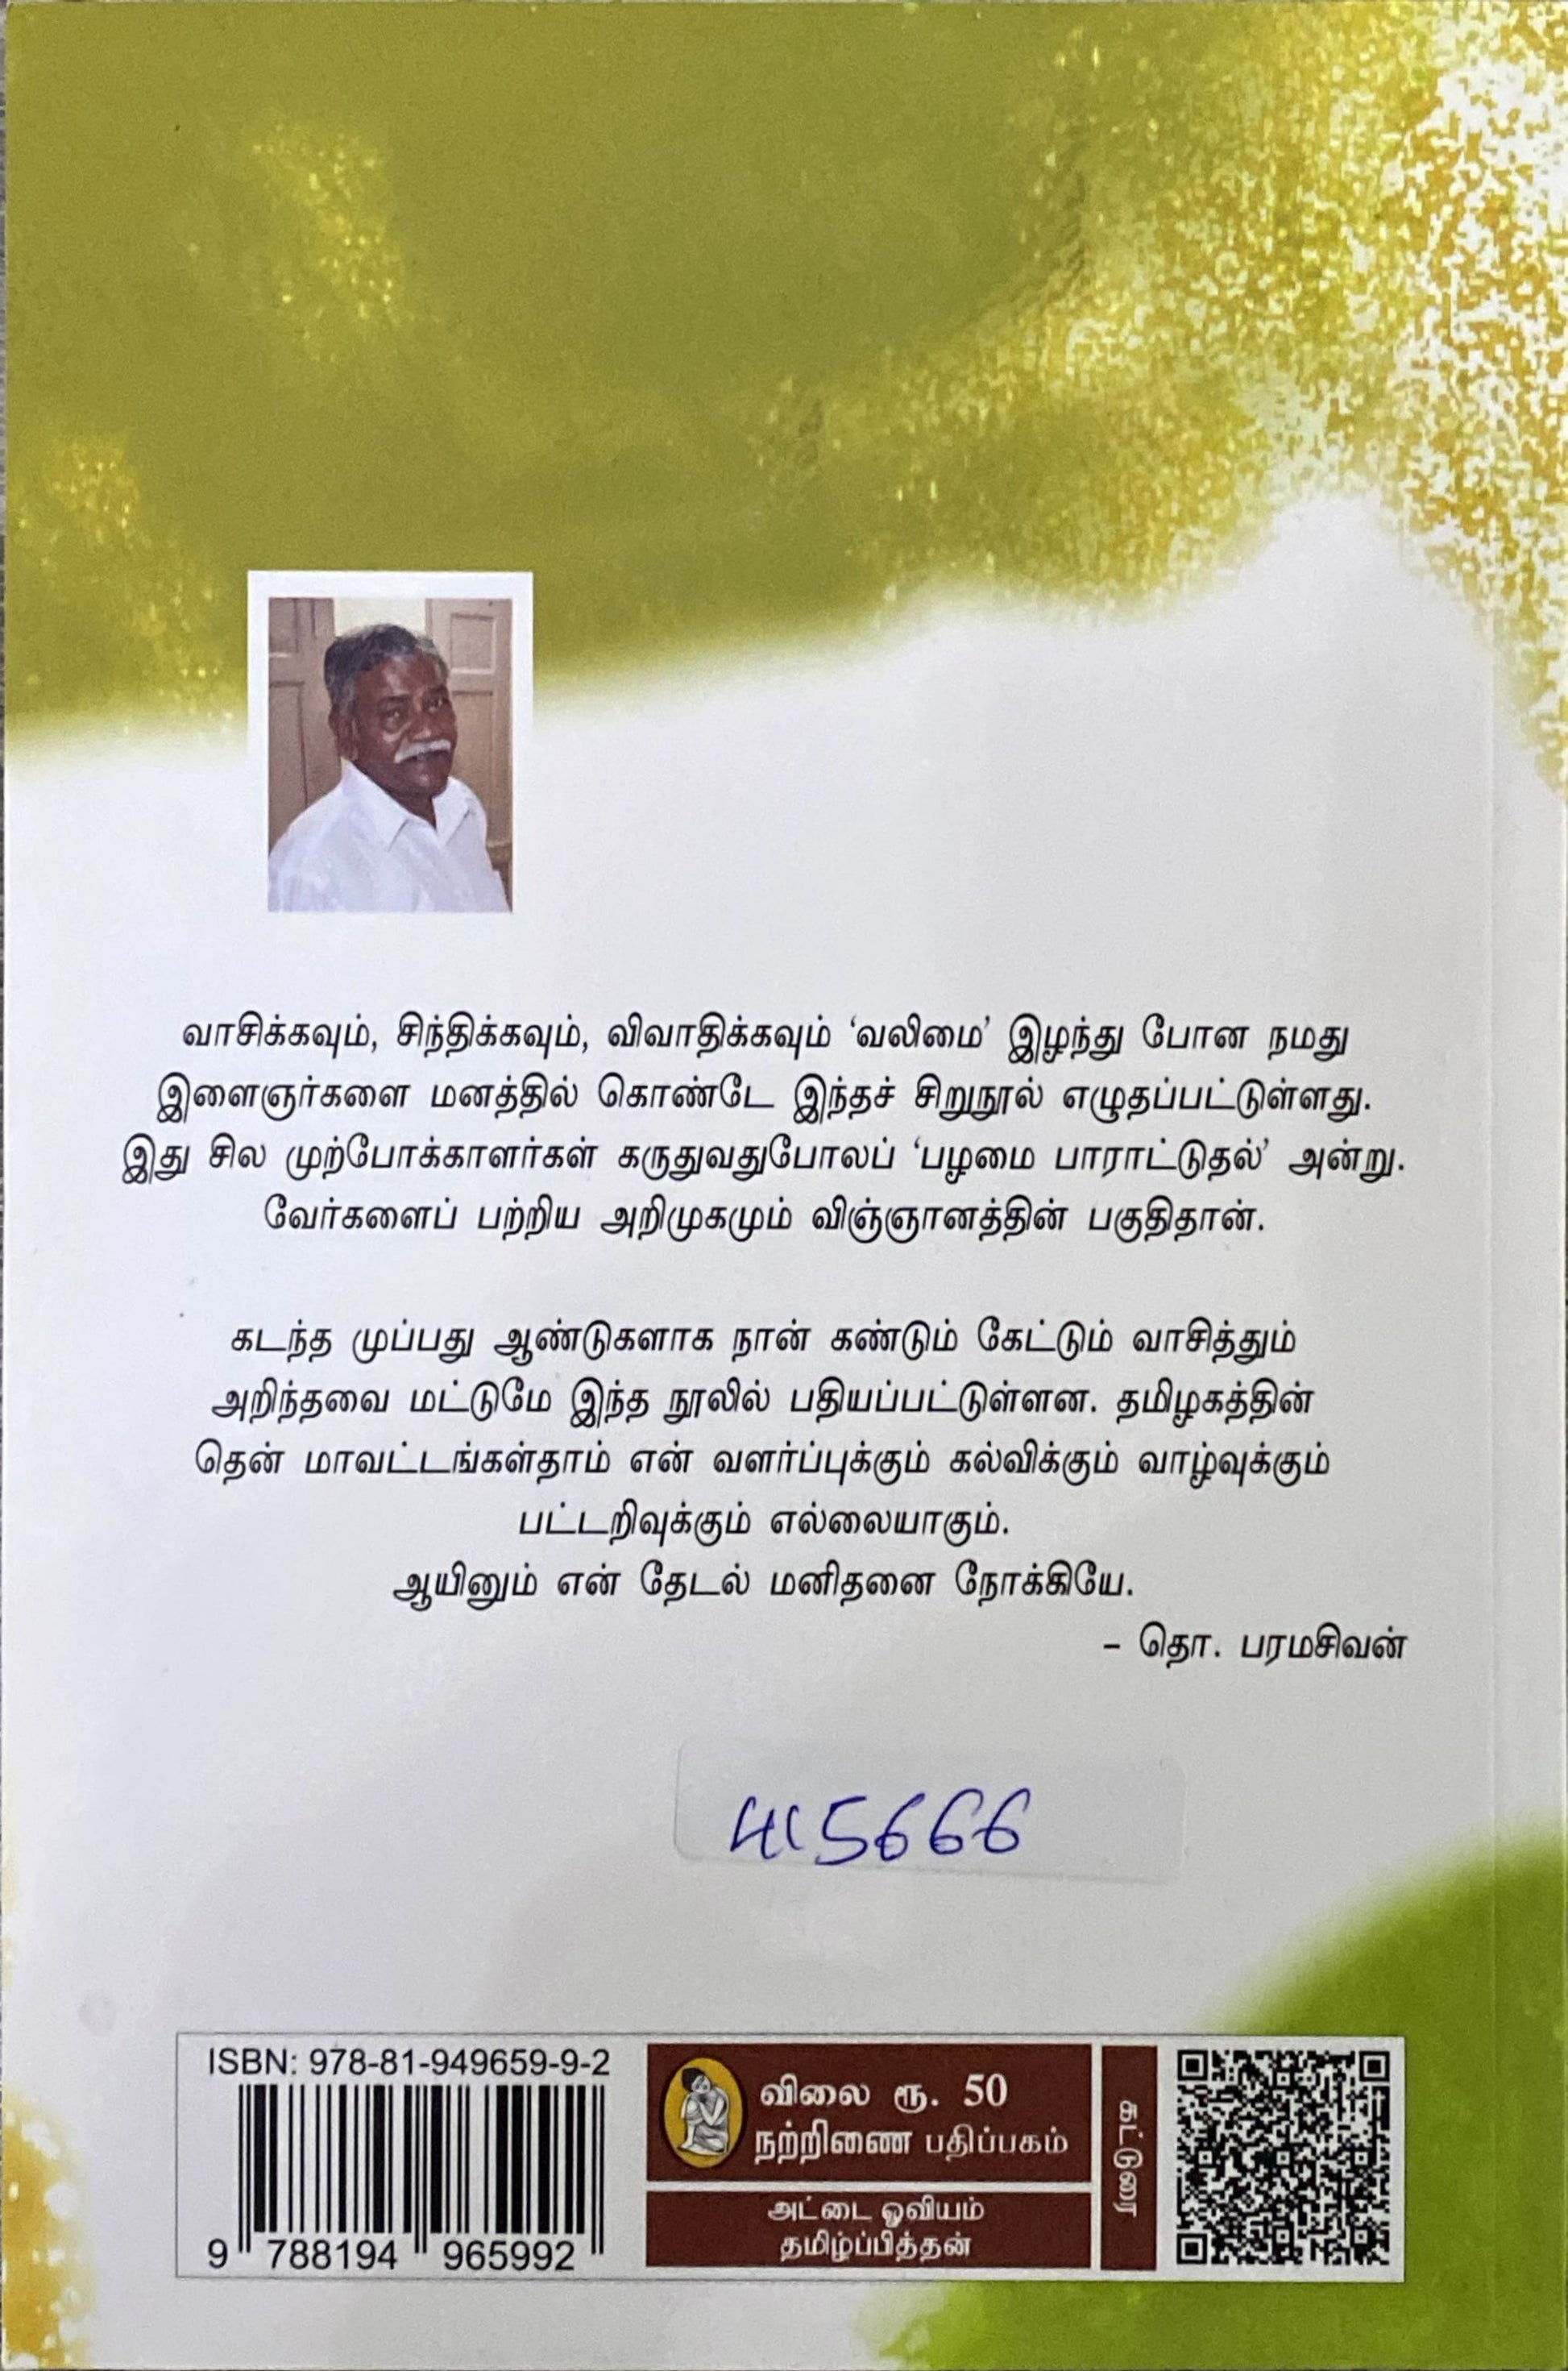 வாசிக்கவும், சிந்திக்கவும், விவாதிக்கவும் ‘வலிமை’ இழந்து போன நமது
இளைஞர்களை மனத்தில் கொண்டே இந்தச் சிறுநூல் எழுதப்பட்டுள்ளது.
இது சில முற்போக்காளர்கள் கருதுவதுபோலப் ‘பழமை பாராட்டுதல்’ அன்று.
வேர்களைப் பற்றிய அறிமுகமும் விஞ்ஞானத்தின் பகுதிதான்.
கடந்த முப்பது ஆண்டுகளாக நான் கண்டும் கேட்டும் வாசித்தும்
அறிந்தவை மட்டுமே இந்த நூலில் பதியப்பட்டுள்ளன. தமிழகத்தின்
தென் மாவட்டங்கள்தாம் என் வளர்ப்புக்கும் கல்விக்கும் வாழ்வுக்கும்
பட்டறிவுக்கும் எல்லையாகும்.
ஆயினும் என் தேடல் மனிதனை நோக்கியே.
– தொ. பரமசிவன்
415666
ISBN: 978-81-949659-9-2
9 788194 965992
விலை ரூ. 50
நற்றிணை பதிப்பகம்
அட்டை ஓவியம்
தமிழ்ப்பித்தன்
கட்டுரை